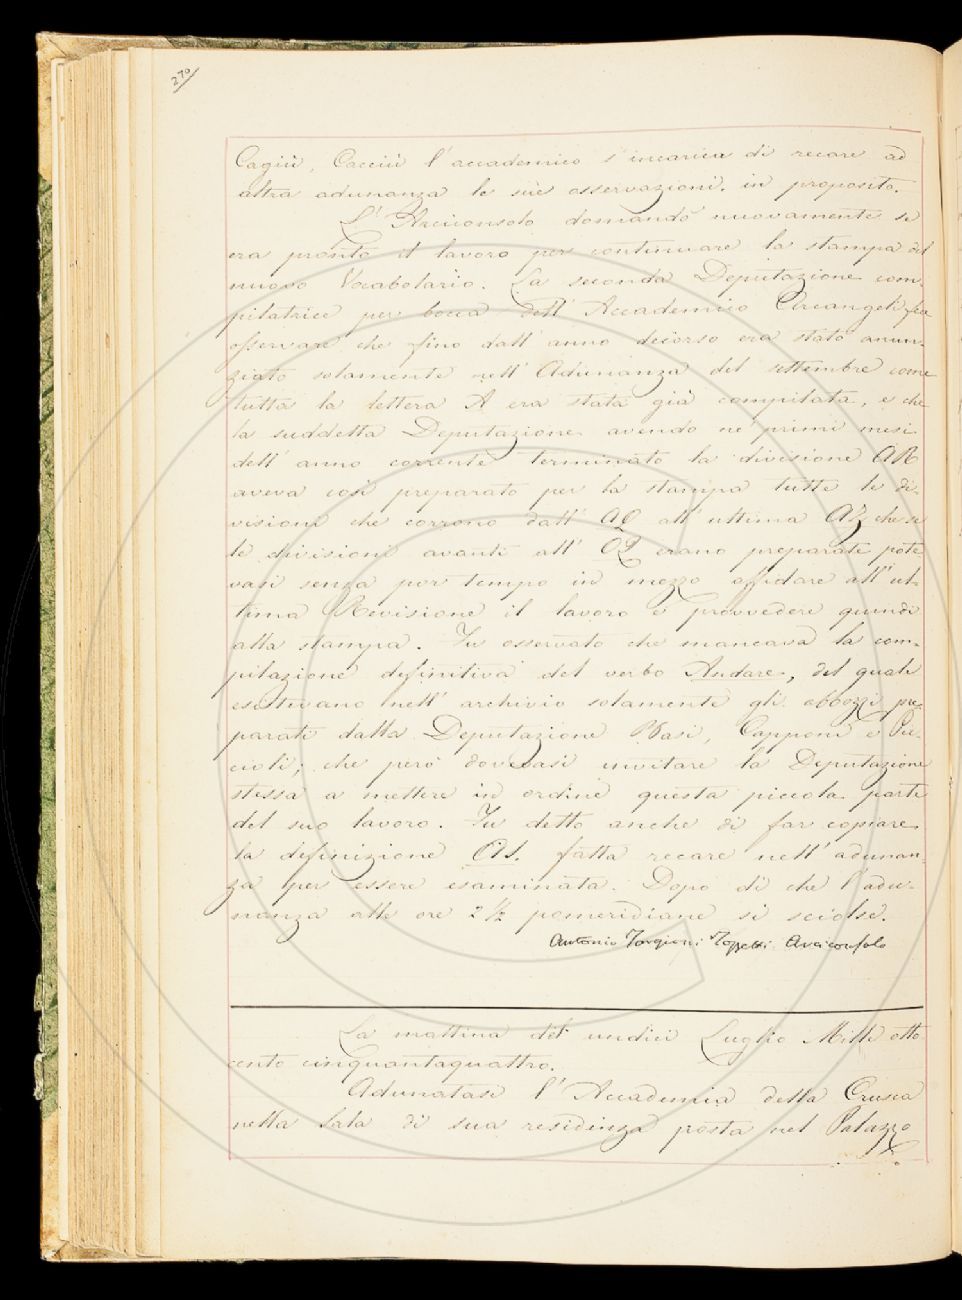 270
Cagiù, Cacciù l'accademico s'incarica di recare ad
altra adunanza le sue osservazioni in proposito.
L'Arciconsolo domandò nuovamente se
era pronto il lavoro per continuare la stampa del
nuovo Vocabolario. La seconda Deputazione com-
pilatrice per bocca dell'Accademico Arcangeli fea
osservare che fino dall'anno decorso era stato anun-
ziato solamente nell'Adunanza del settembre come
tutta la lettera A era stata già compilata, e che
la suddetta Deputazione avendo ne' primi mesi
dell'anno corrente terminato la divisione AR
aveva così preparato per la stampa tutte le di-
visioni che corrono dall' AQ all'ultima AZ che se
le divisioni avanti all' erano preparate pote
vasi senza por tempo in mezzo affidare all'ul-
tima Revisione il lavoro e provvedere quindi
alla stampa. Fu osservato che mancava la com-
pilazione definitiva del verbo Andare, del quale
esistevano nell'archivio solamente gli abbozzi pre-
parati dalla Deputazione Masi, Capponi e Puc-
cioli; che però dovevasi invitare la Deputazione
stessa a mettere in ordine questa piccola parte
del suo lavoro. Fu detto anche di far copiare
la definizione fatta recare nell'adunan-
za per essere esaminata. Dopo di che l'adu-
nanza alle ore 2 1/2 pomeridiane si sciolse.
Antonio Targioni Tozzetti Arciconsolo
La mattina del undici Luglio Mille otto
cento cinquantaquattro.
Adunatasi l'Accademia della Crusca
nella Sala di sua residenza posta nel Palazzo